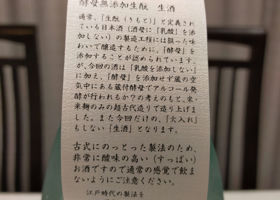 酵母無添加生酛　生酒
通常、「生酛(きもと)」と定義され
ている日本酒(酒母に「乳酸」を添
加しない)の製造工程には狙った味
わいで醸造するために、「酵母」を
添加することが認められています。
が、今回の酒は「乳酸を添加しない」
に加え、「酵母」を添加せず蔵の空
気中にある蔵付酵母でアルコール発
酵が行われるか?の考えのもと、米・
米麹のみの超古代造りで造り上げま
した。また今回だけの、「火入れ」
もしない「生酒」となります。
古式にのっとった製法のため、
非常に酸味の高い(すっぱい)
お酒ですので通常の感覚で飲ま
ないようにご注意ください。
江戸時代の製法を